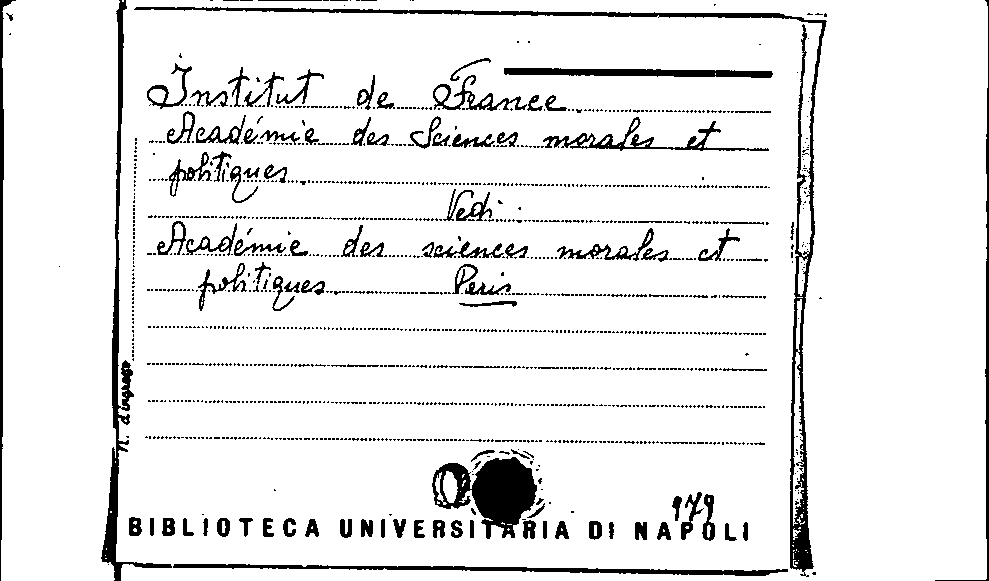 Institut de France.
Académie des Sciences morales et
politiques.
Vedi:
Académie des sciences morales et
politiques. Paris
N. d'ingresso
179
BIBLIOTECA UNIVERSITARIA DI NAPOLI